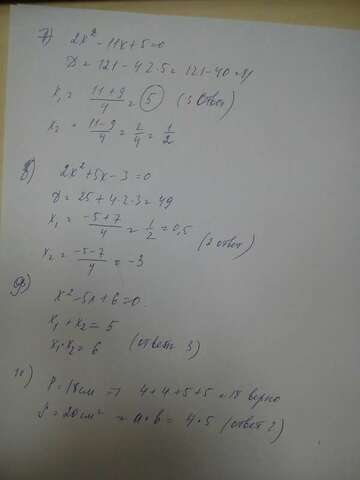 7) 2x² - 11x + 5 = 0
D = 121 - 4·2·5 = 121 - 40 = 81
x₁ = (11+9)/4 = 5 (3 ответ)
x₂ = (11-9)/4 = 2/4 = 1/2
8) 2x² + 5x - 3 = 0
D = 25 + 4·2·3 = 49
x₁ = (-5+7)/4 = 1/2 = 0,5 (2 ответ)
x₂ = (-5-7)/4 = -3
9) x² - 5x + 6 = 0
x₁ + x₂ = 5
x₁·x₂ = 6 (ответ 3)
P = 18см => 4+4+5+5 = 18 верно
S = 20см² = a·b = 4·5 (ответ 2)